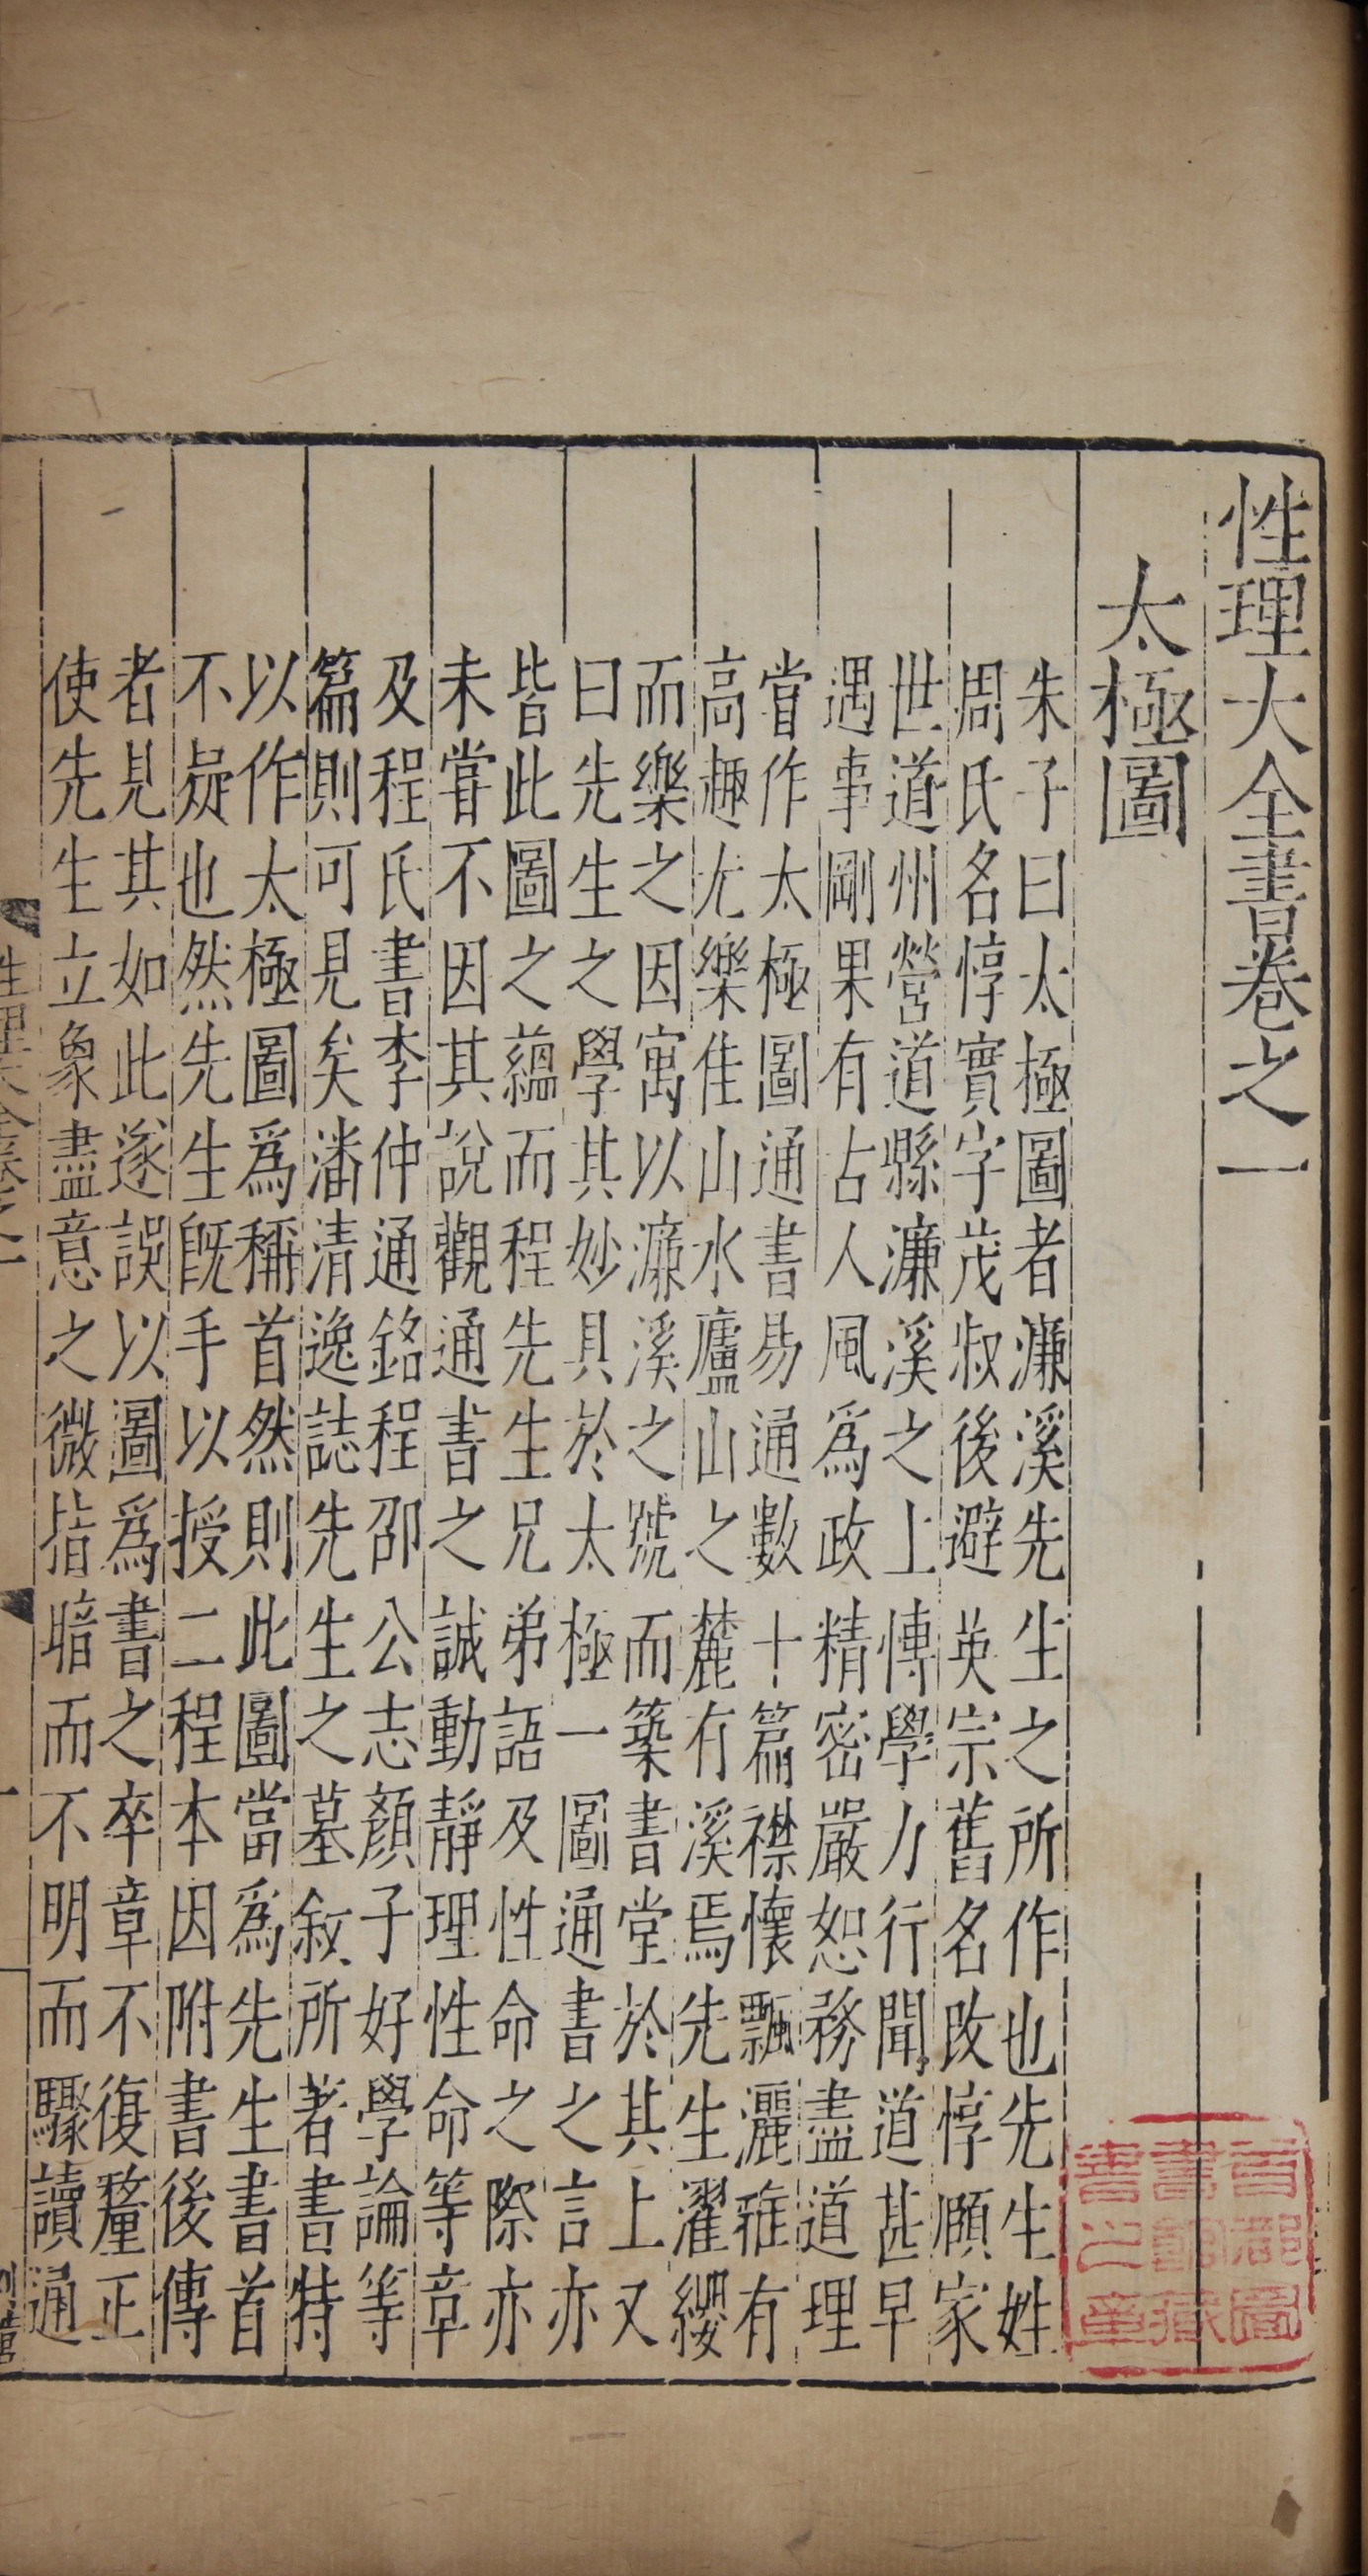 性理大全書卷之一
太極圖
朱子曰太極圖者濂溪先生之所作也先生姓
周氏名惇實字茂叔後避英宗舊名改惇頥家
世道州營道縣濂溪之上博學力行聞道甚早
遇事剛果有古人風爲政精密嚴恕務盡道理
嘗作太極圖通書易通數十篇襟懷飄灑雅有
高趣尤樂佳山水廬山之麓有溪焉先生濯纓
而樂之因寓以濂溪之號而築書堂於其上又
曰先生之學其妙具於太極一圖通書之言亦
皆此圖之蘊而程先生兄弟語及性命之際亦
未嘗不因其說觀通書之誠動靜理性命等章
及程氏書李仲通銘程邵公志顏子好學論等
篇則可見矣潘清逸誌先生之墓敘所著書特
以作太極圖爲稱首然則此圖當爲先生書首
不疑也然先生旣手以授二程本因附書後傳
者見其如此遂誤以圖爲書之卒章不復釐正
使先生立象盡意之微㫖暗而不明而驟讀通
首都圖
書館藏
書之章